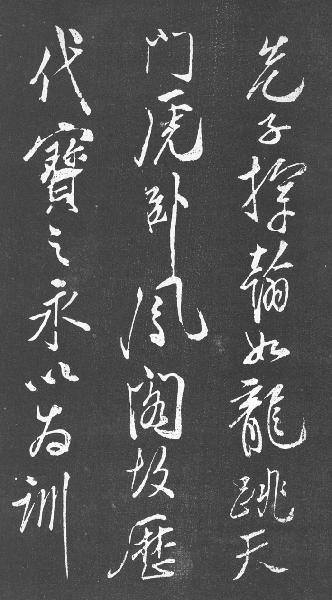 先子揮翰如龍跳天
門虎卧鳳閣故歷
代寶之永以為訓